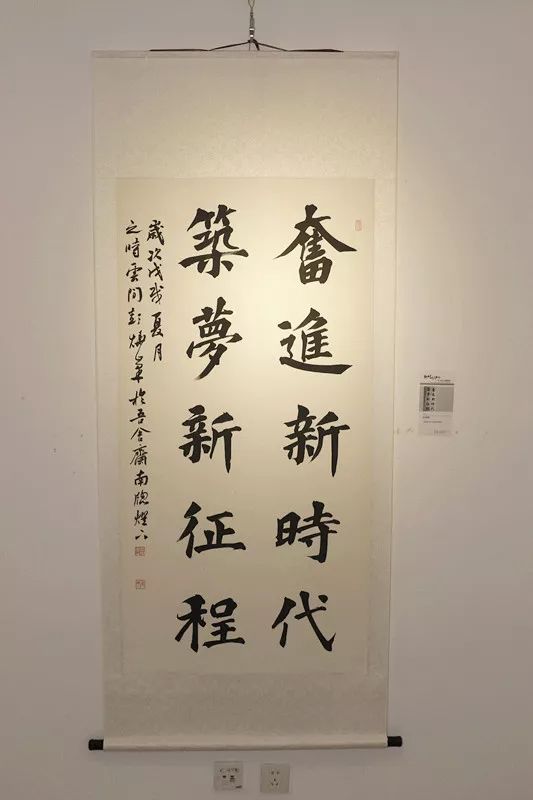 奮進新時代
築夢新征程
歲次戊戌夏月
之時雲間彭炳華於吾舍齋南牕燈下